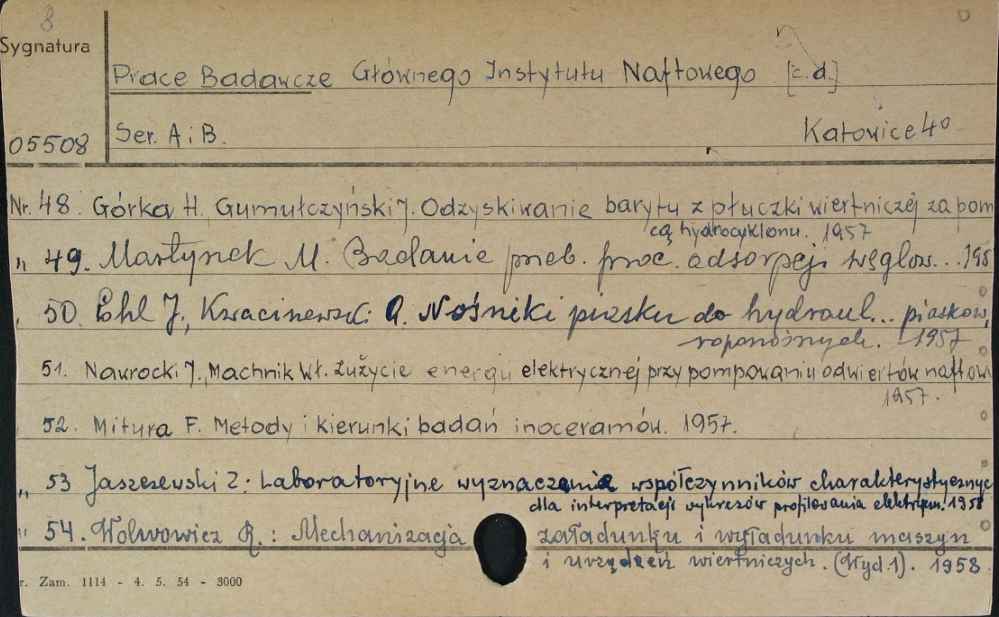 8
Sygnatura
Prace Badawcze Głównego Instytutu Naftowego [c.d.]
05508 Ser. A i B. Katowice 4°
Nr. 48. Górka H. Gumułczyński J. Odzyskiwanie barytu z płuczki wiertniczej za pom
cą hydrocyklonu. 1957
„ 49. Martynek M. Badanie prób. proc. adsorpcji węglow... 195
50. Ehl J., Kwaciszewski A. Nośniki piasku do hydraul... piasków,
roponośnych. 1957
51. Nawrocki J., Machnik Wł. Zużycie energii elektrycznej przy pompowaniu odwiertów naftow
1957.
52. Mitura F. Metody i kierunki badań inoceramów. 1957.
„ 53 Jaszszewski Z. Laboratoryjne wyznaczenie współczynników charakterystycznyc
dla interpretacji wykresów profilowania elektrycn. 1958
" 54. Wolwowicz R.: Mechanizacja załadunku i wyładunku maszyn
i urządzeń wiertniczych. (Wyd. 1). 1958.
r. Zam. 1114 - 4. 5. 54 - 3000